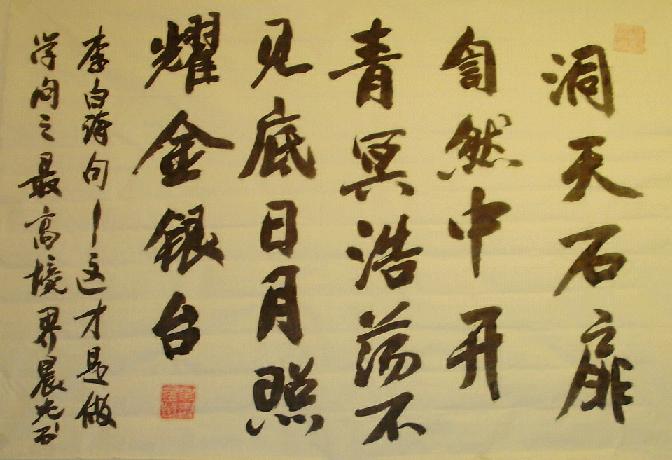 洞天石扉
訇然中开
青冥浩荡不
见底日月照
耀金银台
李白诗句—这才是做
学问之最高境界晨光书